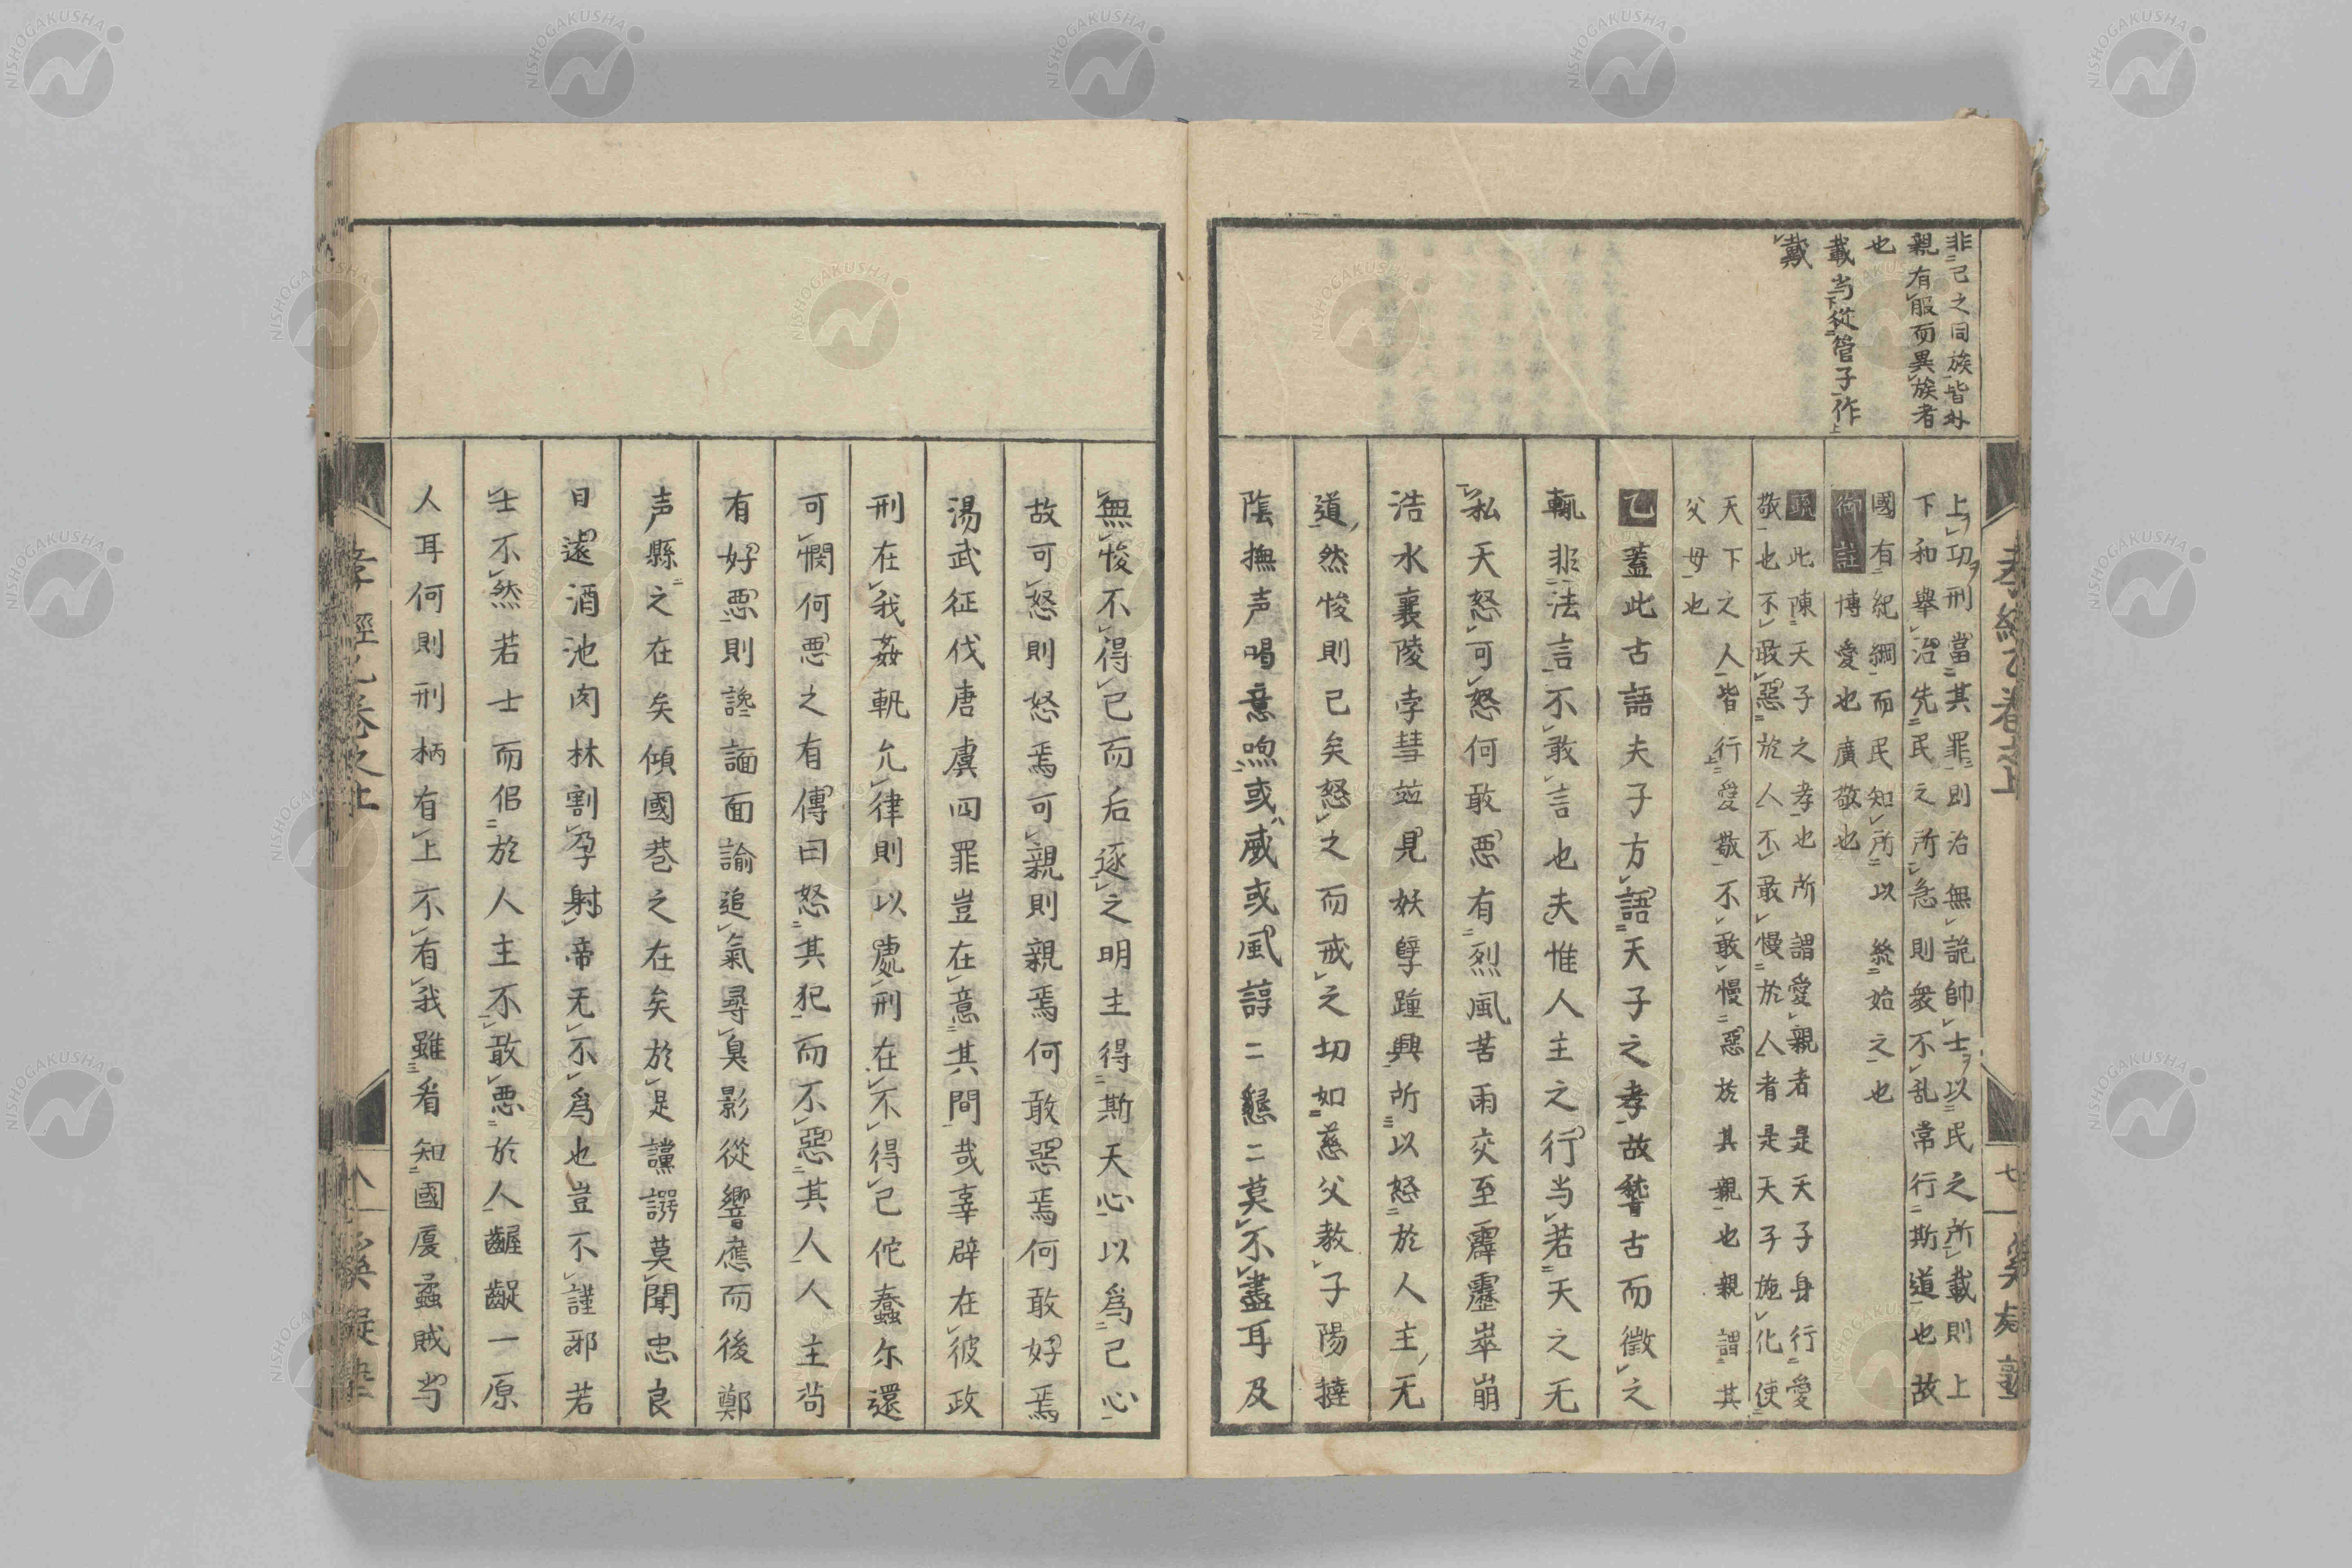 非己之同族皆外
親有服而異族者
也
載当從管子作
戴
上功刑當其罪則治無詭帥士以民之所載則上
下和舉治先民之所急則衆不乱常行斯道也故
國有紀綱而民知所以終始之也
御註博愛也廣敬也
疏此陳天子之孝也所謂愛親者是天子身行愛
敬也不敢惡於人不敢慢於人者是天子施化使
天下之人皆行愛敬不敢慢惡於其親也親謂其
父母也
乙蓋此古語夫子方語天子之孝故誓古而徵之
輒非法言不敢言也夫惟人主之行当若天之无
私天怒可怒何敢悪有烈風苦雨交至霹靂崒崩
浩水襄陵孛彗竝見妖孽踵興所以怒於人主无
道然悛則已矣怒之而戒之切如慈父教子陽撻
陰撫声喝意喣或威或風諄二懇二莫不盡耳及
無悛不得已而后逐之明主得斯天心以爲己心
故可怒則怒焉可親則親焉何敢惡焉何敢好焉
湯武征伐唐虞四罪豈在意其間哉辜辟在彼政
刑在我姦軌允律則以處刑在不得已佗蠢尓還
可憫何悪之有傳曰怒其犯而不惡其人人主苟
有好悪則讒諞面諭追氣尋臭影從響應而後鄭
声縣之在矣傾國巷之在矣於是讜諤莫聞忠良
日遠酒池肉林割孕射帝无不爲也豈不謹邪若
士不然若士而佀於人主不敢悪於人齷齪一原
人耳何則刑柄有上不有我雖看知國廋蟊賊当
孝經乙卷之上
八